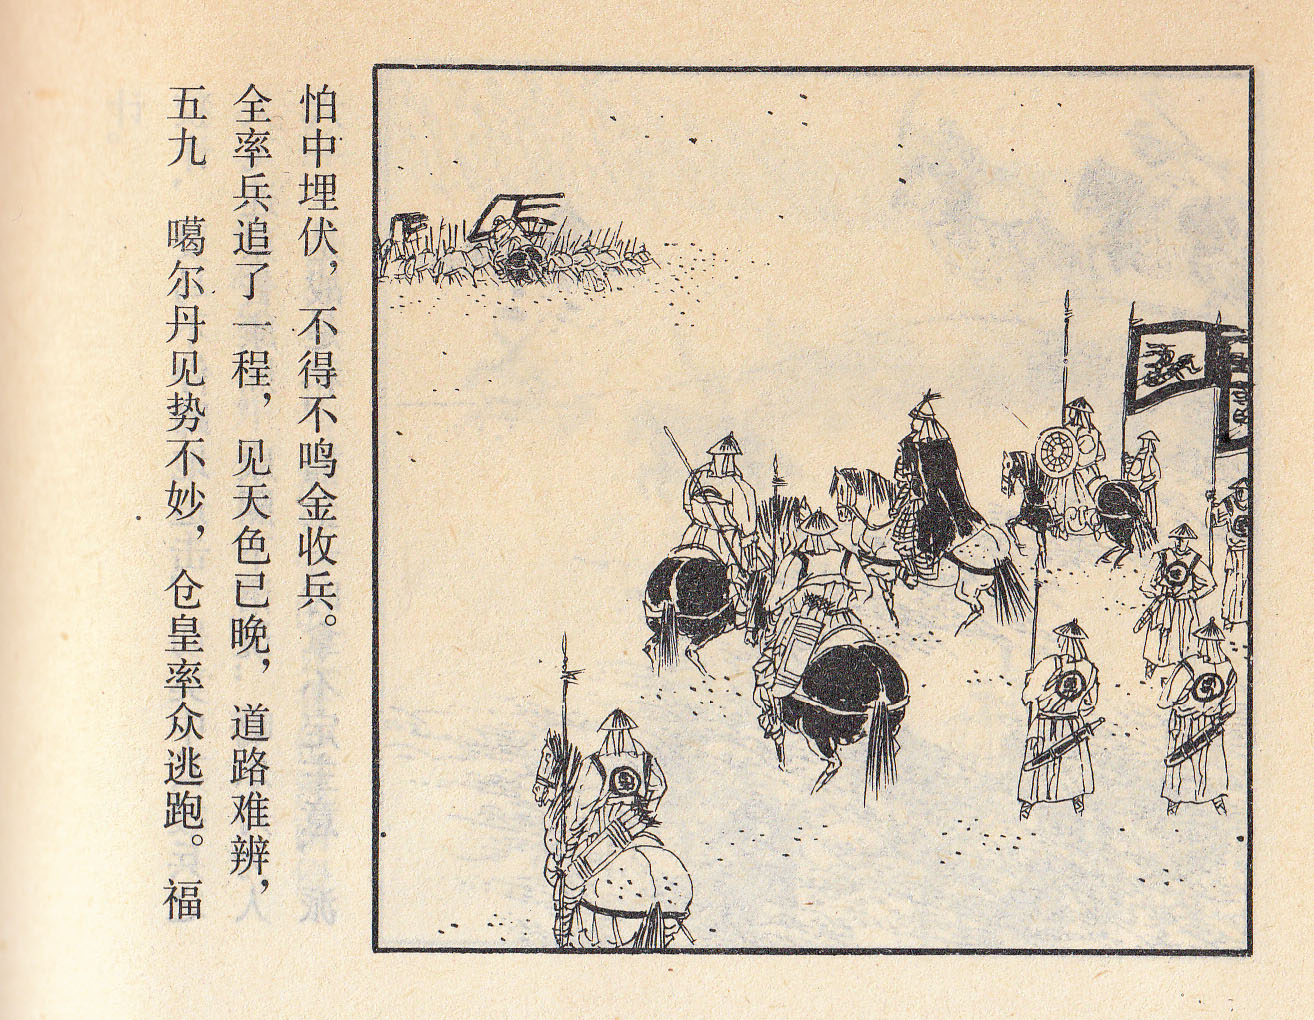 五九 噶尔丹见势不妙，仓皇率众逃跑。福
全率兵追了一程，见天色已晚，道路难辨，
怕中埋伏，不得不鸣金收兵。